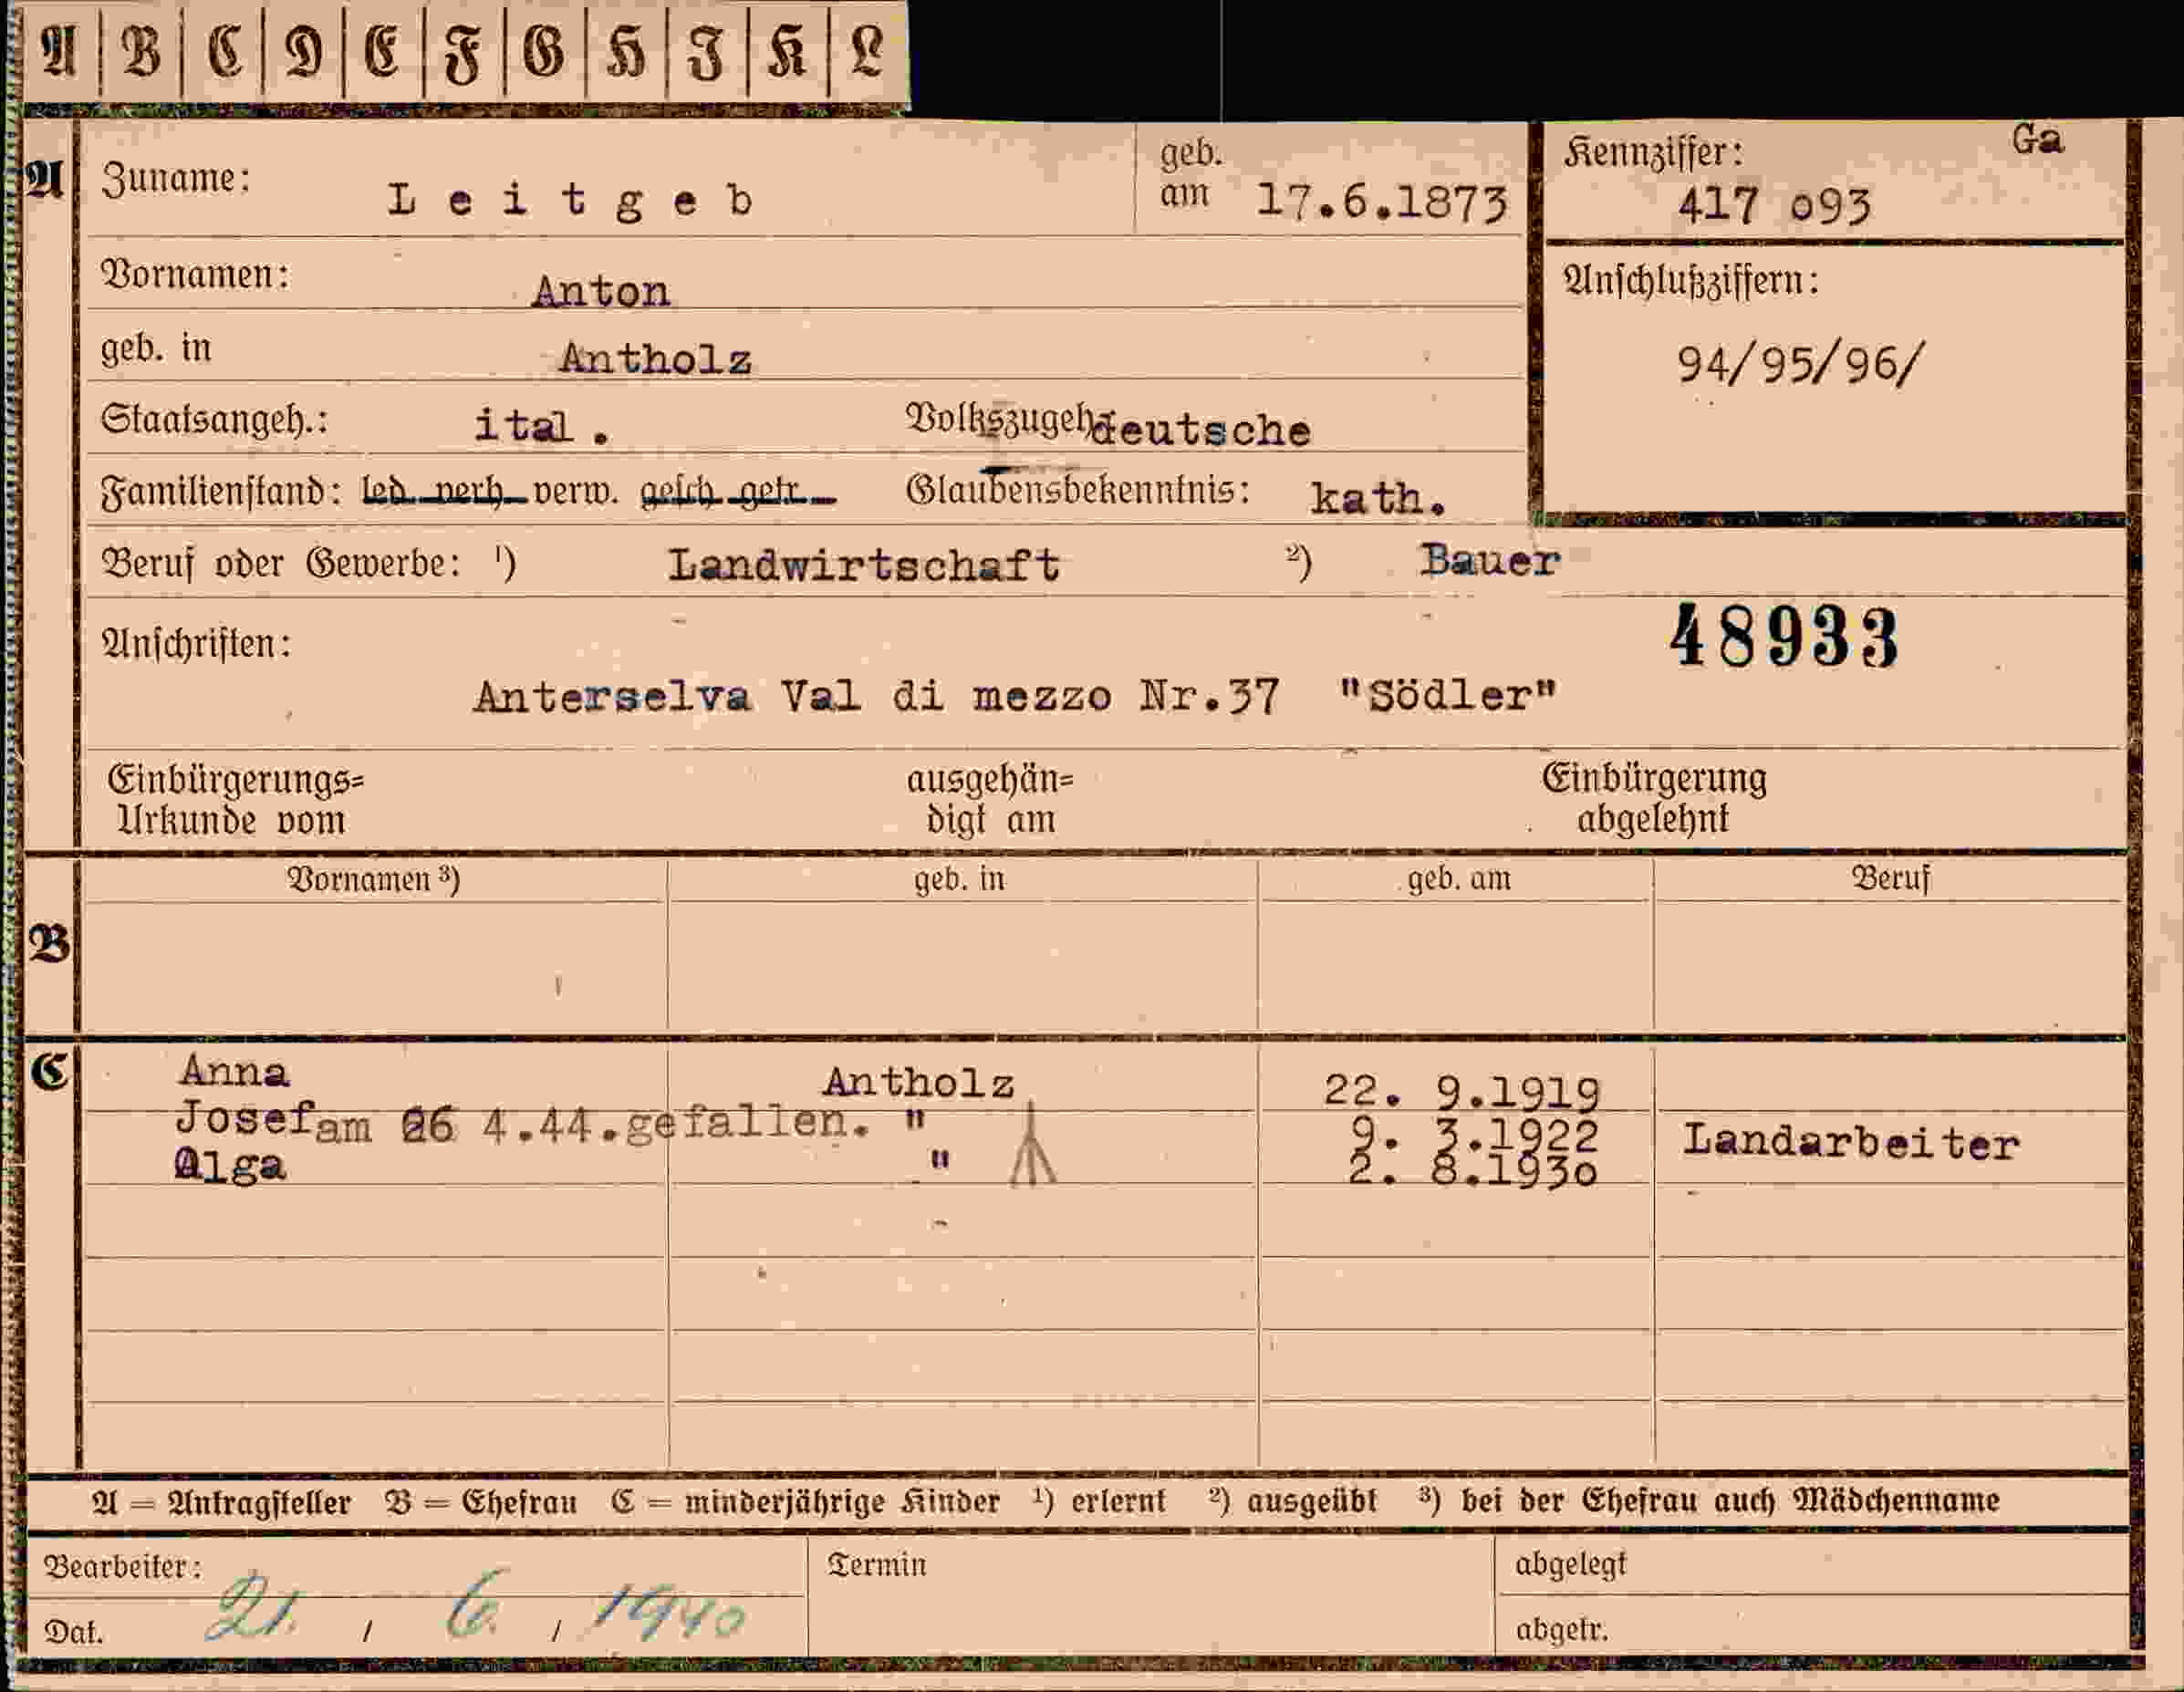 A B C D E F G H I K L
Ga
A Zuname: Leitgeb geb. am 17.6.1873 Kennziffer: 417 093
Vornamen: Anton Anschlußziffern:
geb. in Antholz 94/95/96/
Staatsangeh.: ital. Volkszugeh. deutsche
Familienstand: led. verh. verw. gesch. getr. Glaubensbekenntnis: kath.
Beruf oder Gewerbe: 1) Landwirtschaft 2) Bauer
Anschriften: 48933
Anterselva Val di mezzo Nr.37 "Södler"
Einbürgerungs= ausgehän= Einbürgerung
Urkunde vom digt am abgelehnt
Vornamen 3) geb. in geb. am Beruf
B
C Anna Antholz 22. 9.1919
Josef am 26 4.44.gefallen. " 9. 3.1922 Landarbeiter
Olga " 2. 8.1930
A = Antragsteller B = Ehefrau C = minderjährige Kinder 1) erlernt 2) ausgeübt 3) bei der Ehefrau auch Mädchenname
Bearbeiter: Termin abgelegt
Dat. 21. / 6. / 1940 abgetr.